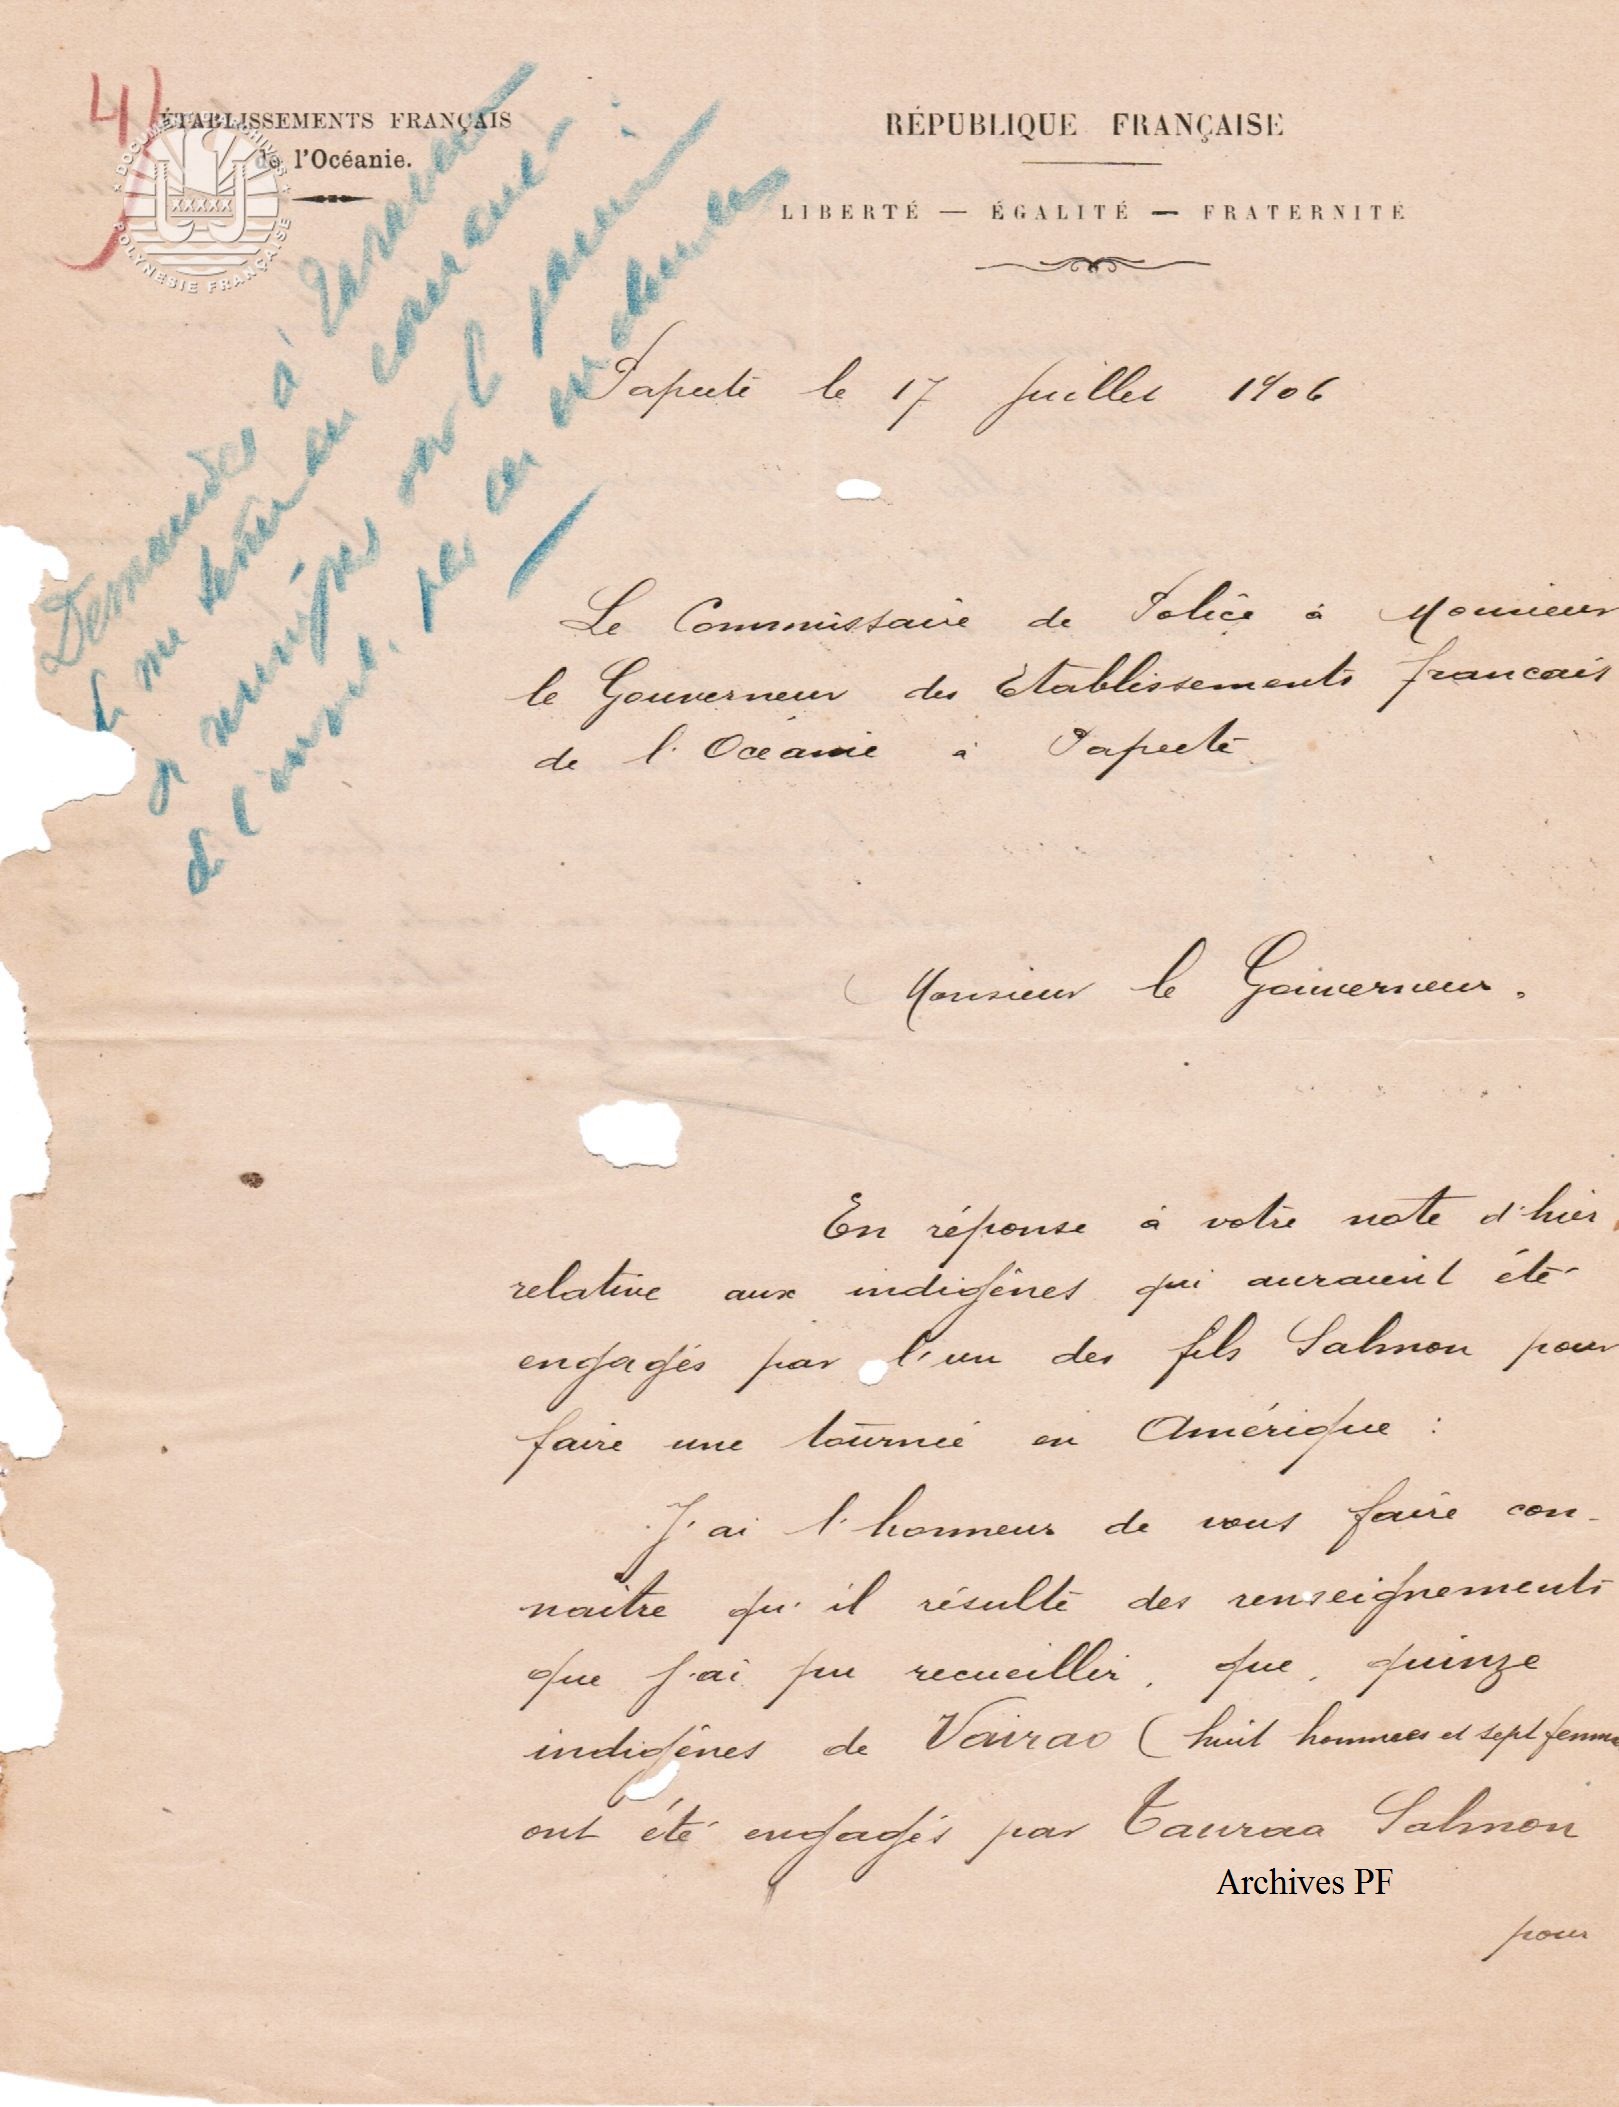 4)
ÉTABLISSEMENTS FRANÇAIS
de l'Océanie.
DOCUMENT ARCHIVES
POLYNESIE FRANÇAISE
RÉPUBLIQUE FRANÇAISE
LIBERTÉ — ÉGALITÉ — FRATERNITÉ
Demander à
me tenir au courant
de
Papeete le 17 Juillet 1906
Le Commissaire de Police à Monsieur
le Gouverneur des Etablissements francais
de l'Océanie à Papeete
Monsieur le Gouverneur.
En réponse à votre note d'hier
relative aux indigênes qui auraient été
engagés par l'un des fils Salmon pour
faire une tournée en Amérique :
J'ai l'honneur de vous faire con-
naitre qu'il résulte des renseignements
que j'ai pu recueillir, que, quinze
indigênes de Vairao (huit hommes et sept femme
ont été engagés par Tauraa Salmon
Archives PF
pour